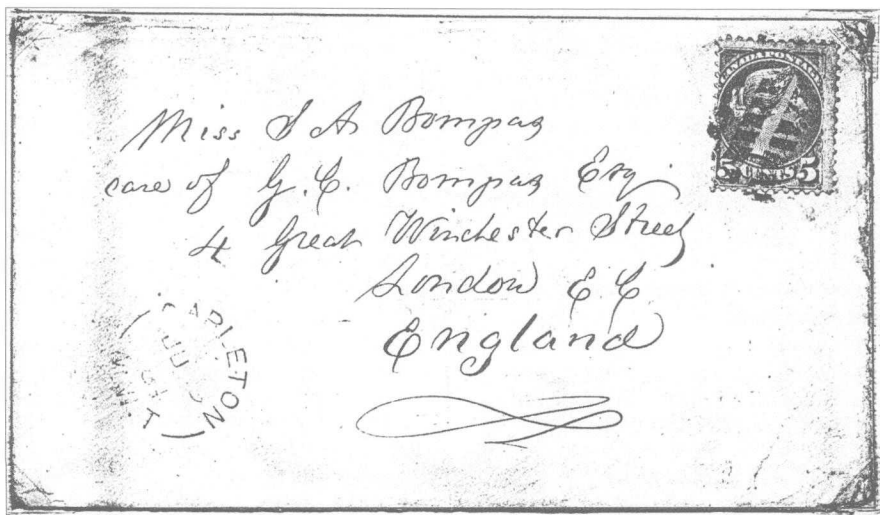 CANADA POSTAGE
5 CENTS 5
Miss S A Bompas
care of G. C. Bompas Esq.
4 Great Winchester Street
London E C
England
CARLETON
N.W.T